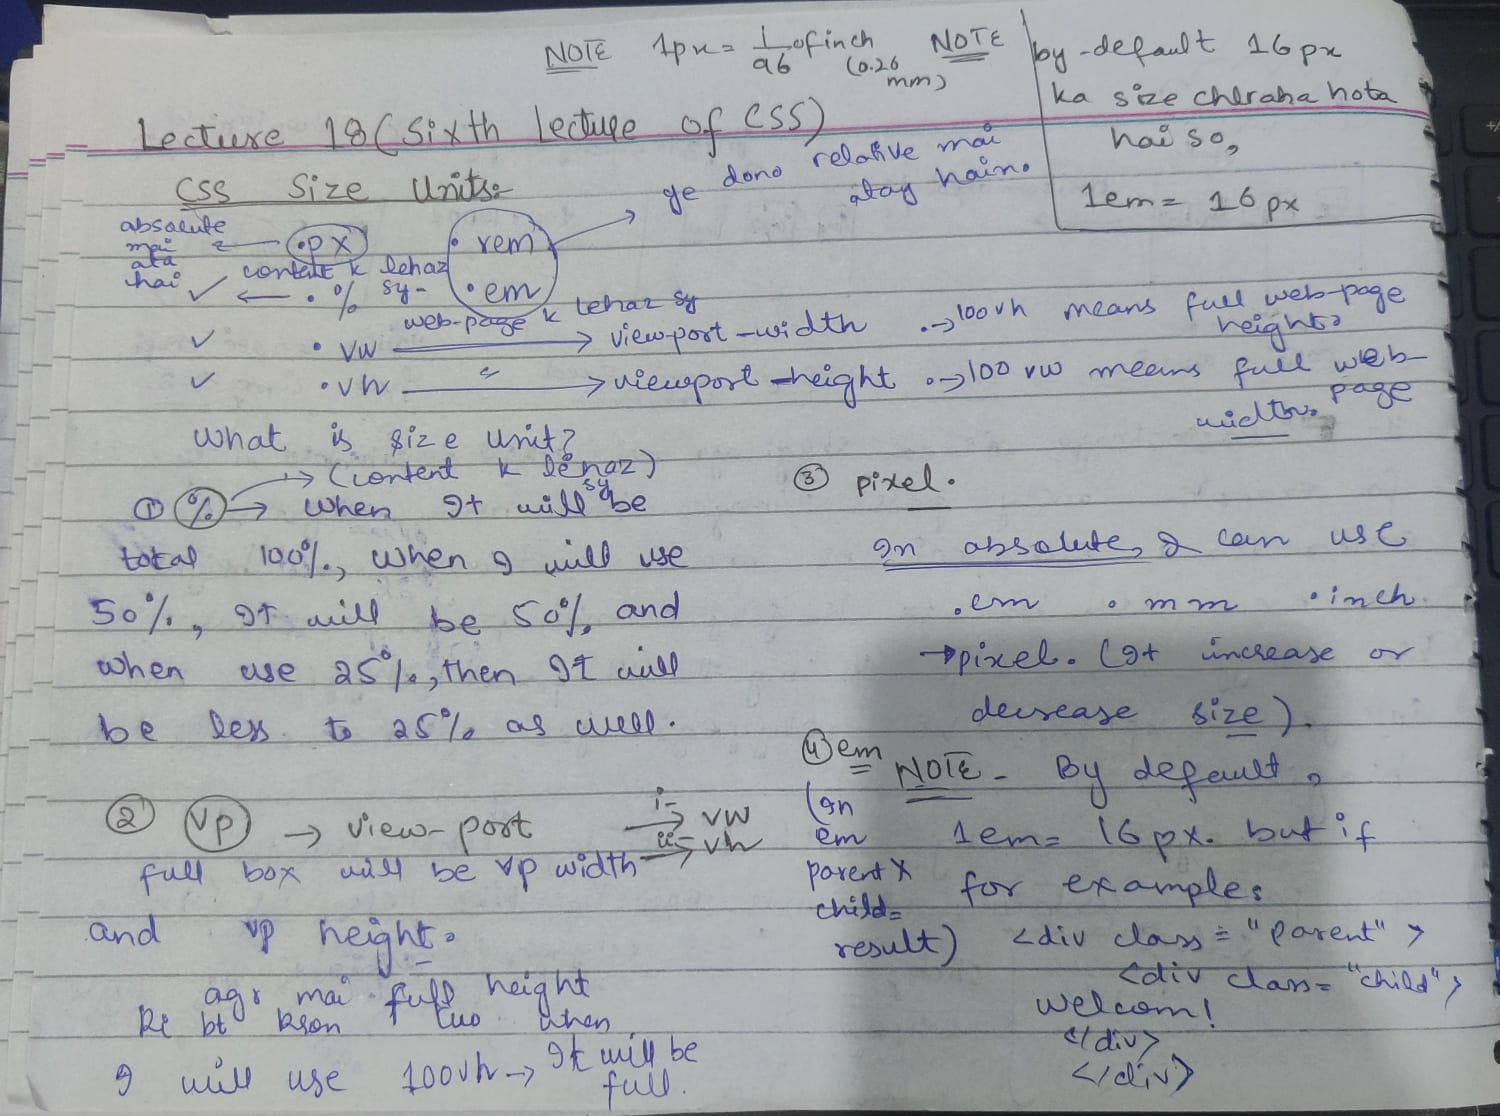 NOTE 1px = 1/96 of inch (0.26 mm) NOTE
by-default 16px
ka size chlraha hota
hai so,
1em = 16px
Lecture 18 (Sixth lecture of CSS)
CSS Size Units:
ye dono relative mai
atay hain.
absolute
mai
ata
hai
• px
• rem
• em
✓ ← • % content k lehaz sy-
web-page k lehaz sy
✓ • vw → viewport-width .→ 100vh means full web-page
height.
✓ • vh → viewport-height .→ 100 vw means full web-
page
width.
What is size unit?
→ (content k lehaz sy)
① % → When It will be
total 100%, when I will use
50%, It will be 50%, and
when use 25%, then It will
be less to 25% as well.
② vp → view-port i- → vw
ii- → vh
full box will be vp width
and vp height.
agr mai full height
ki bt kron tuo when
I will use 100vh → It will be
full.
③ pixel.
In absolute, I can use
.cm • mm • inch
→ pixel. (It increase or
decrease size).
④ em
(In
em
parent x
child =
result)
NOTE - By default,
1em = 16px. but if
for example:
<div class = "parent">
<div class = "child">
welcom!
</div>
</div>